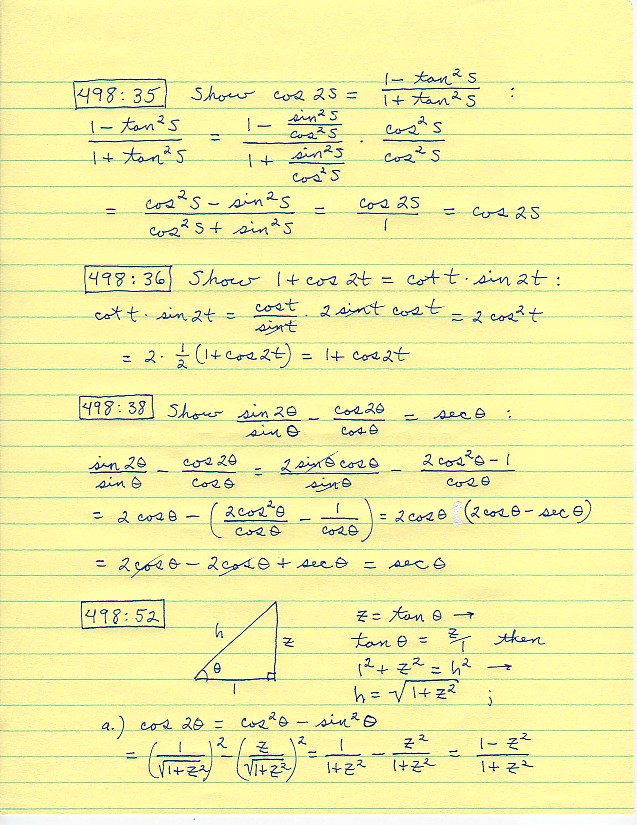 498:35 Show cos 2S = (1 - tan²S)/(1 + tan²S) :
(1 - tan²S)/(1 + tan²S) = (1 - sin²S/cos²S)/(1 + sin²S/cos²S) · cos²S/cos²S
= (cos²S - sin²S)/(cos²S + sin²S) = cos 2S/1 = cos 2S
498:36 Show 1 + cos 2t = cot t · sin 2t :
cot t · sin 2t = cos t/sin t · 2 sin t cos t = 2 cos²t
= 2 · 1/2 (1 + cos 2t) = 1 + cos 2t
498:38 Show sin 2θ/sin θ - cos 2θ/cos θ = sec θ :
sin 2θ/sin θ - cos 2θ/cos θ = 2 sin θ cos θ/sin θ - (2 cos²θ - 1)/cos θ
= 2 cos θ - (2 cos²θ/cos θ - 1/cos θ) = 2 cos θ (2 cos θ - sec θ)
= 2 cos θ - 2 cos θ + sec θ = sec θ
498:52
h
z
θ
1
z = tan θ →
tan θ = z/1 then
1² + z² = h² →
h = √(1 + z²) ;
a.) cos 2θ = cos²θ - sin²θ
= (1/√(1+z²))² - (z/√(1+z²))² = 1/(1+z²) - z²/(1+z²) = (1 - z²)/(1 + z²)